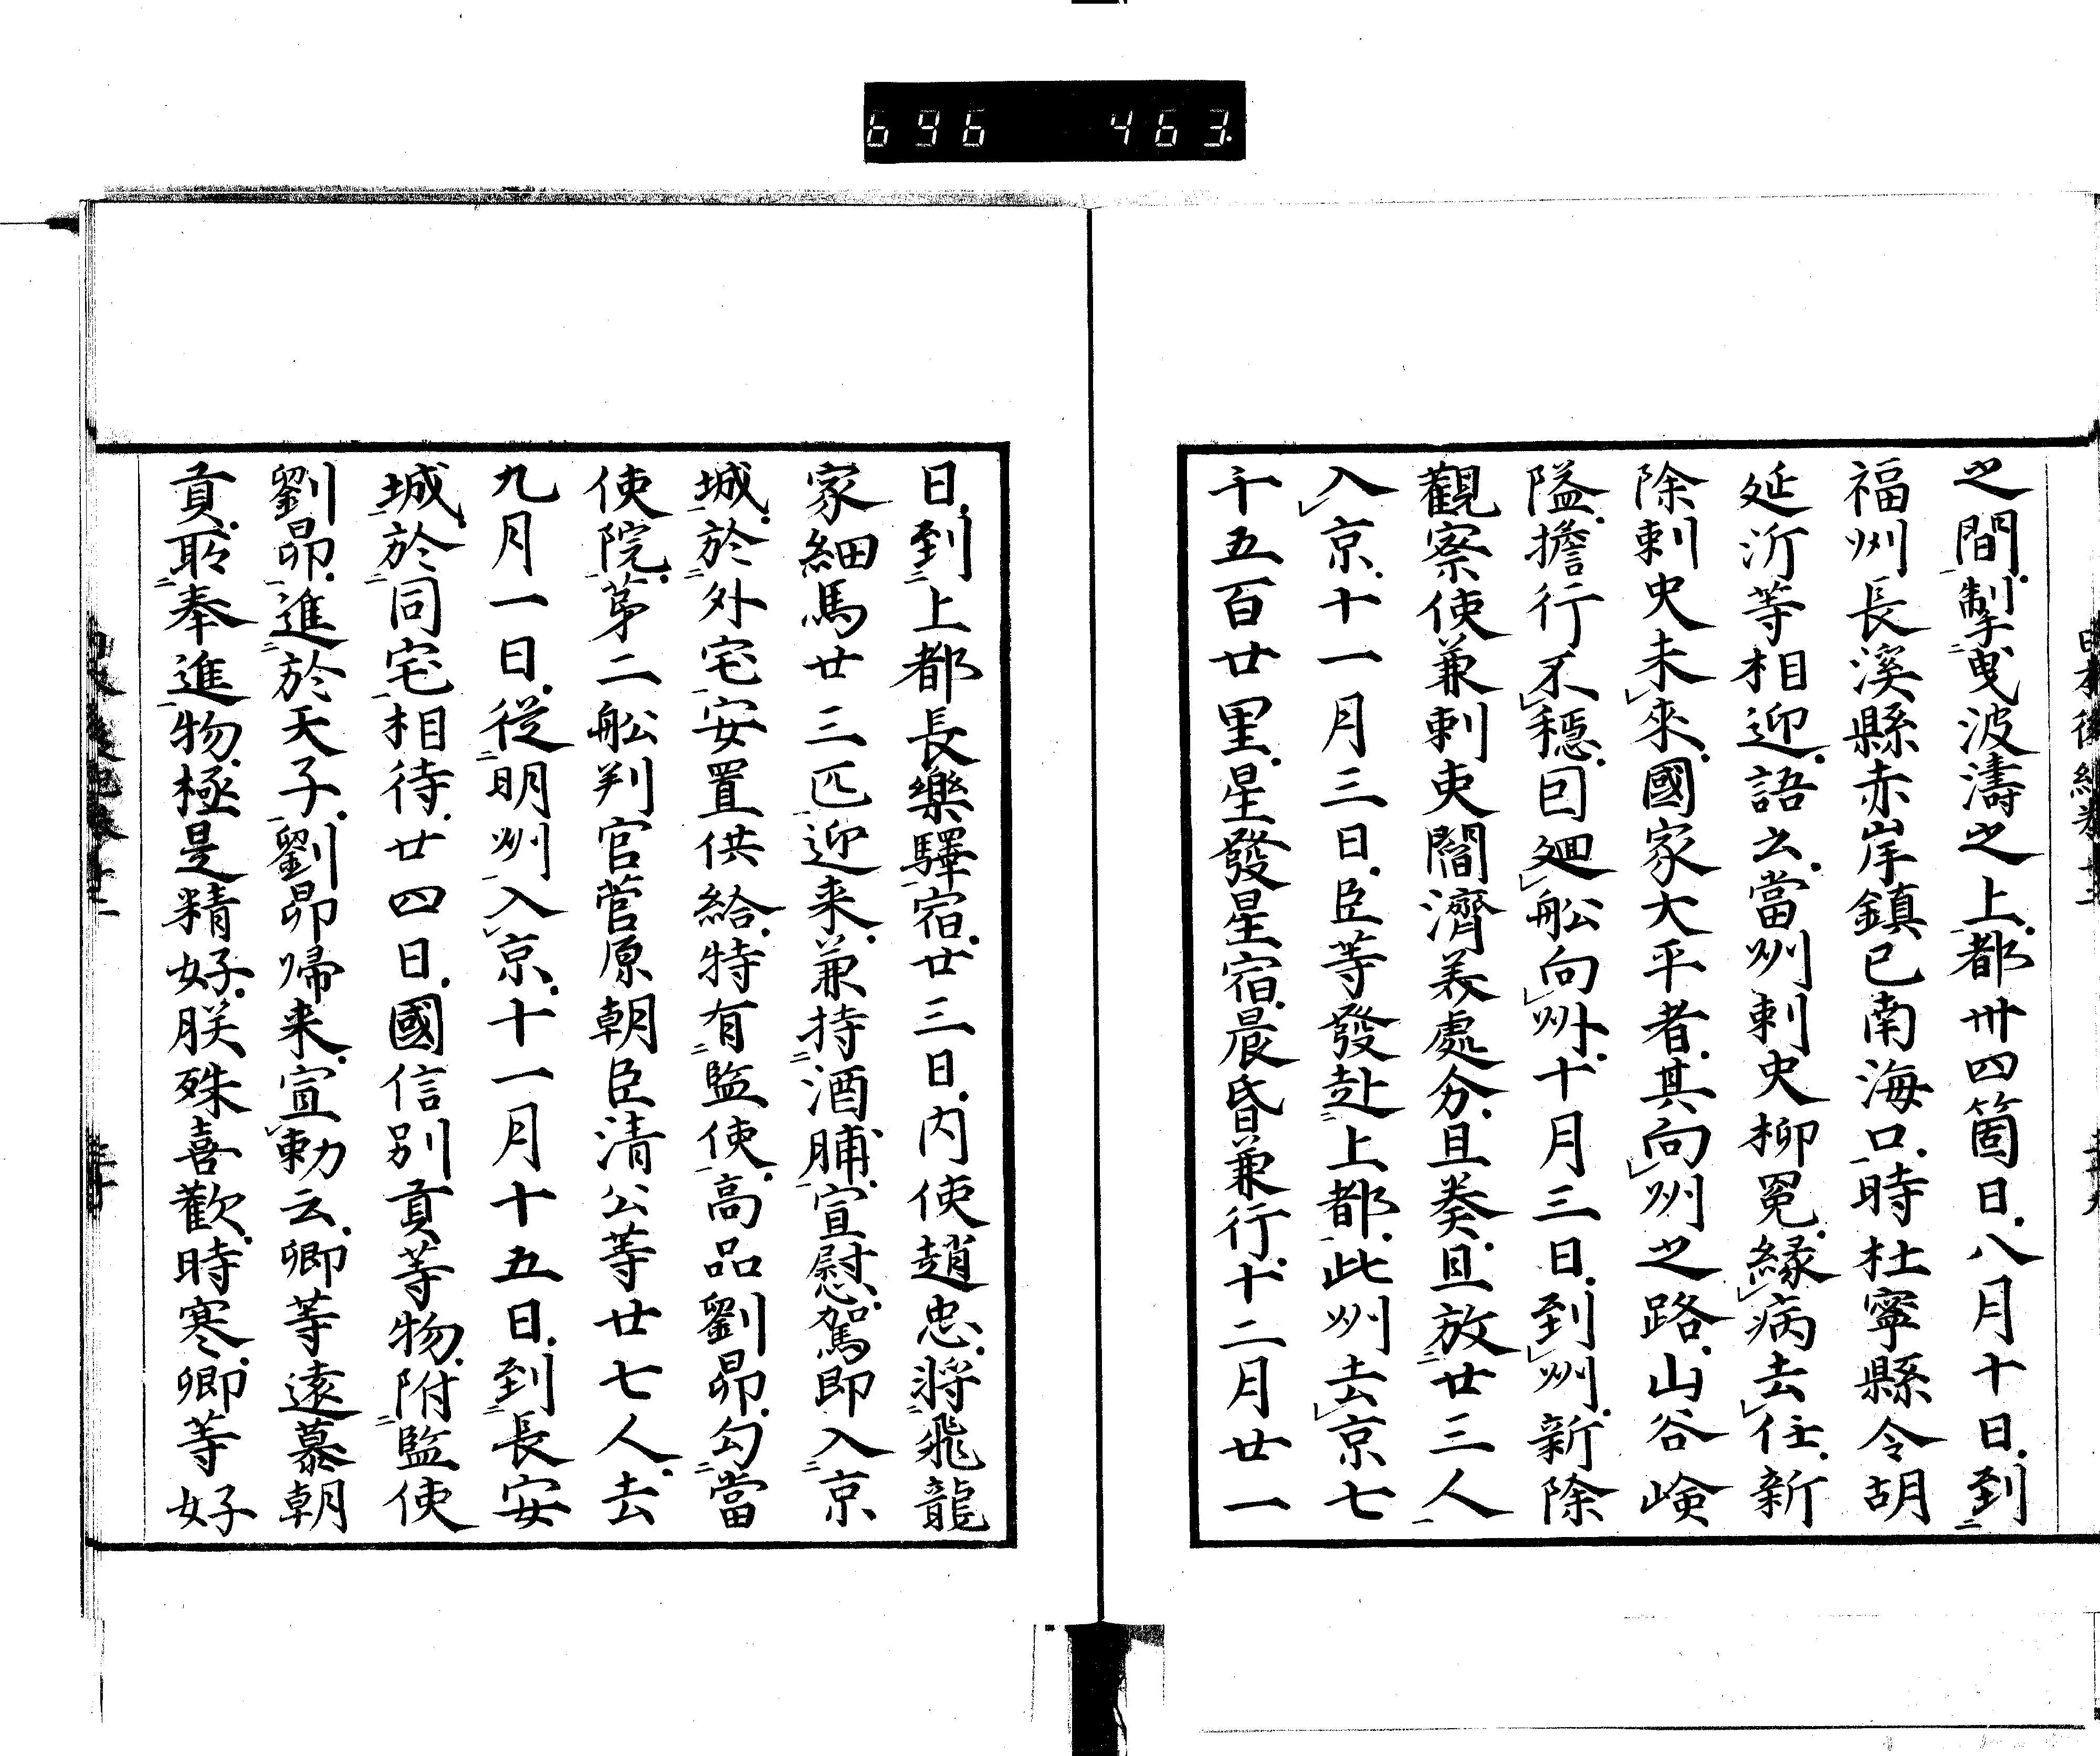 696 463
之間掣曳波濤之上都卅四箇日八月十日到
福州長溪縣赤岸鎮已南海口時杜寧縣令胡
延沂等相迎語云當州刺史柳冕縁病去任新
除刺史未來國家大平者其向州之路山谷嶮
隘擔行不穩囙廻舩向州十月三日到州新除
觀察使兼刺史閻濟美處分且奏且放廿三人
入京十一月三日臣等發赴上都此州去京七
千五百廿里星發星宿晨昏兼行十二月廿一
日到上都長樂驛宿廿三日内使趙忠將飛龍
家細馬廿三匹迎来兼持酒脯宣慰駕即入京
城於外宅安置供給特有監使高品劉昴勾當
使院苐二舩判官菅原朝臣清公等廿七人去
九月一日從明州入京十一月十五日到長安
城於同宅相待廿四日國信別貢等物附監使
劉昴進於天子劉昴帰来宣勅云卿等遠慕朝
貢所奉進物極是精好朕殊喜歡時寒卿等好